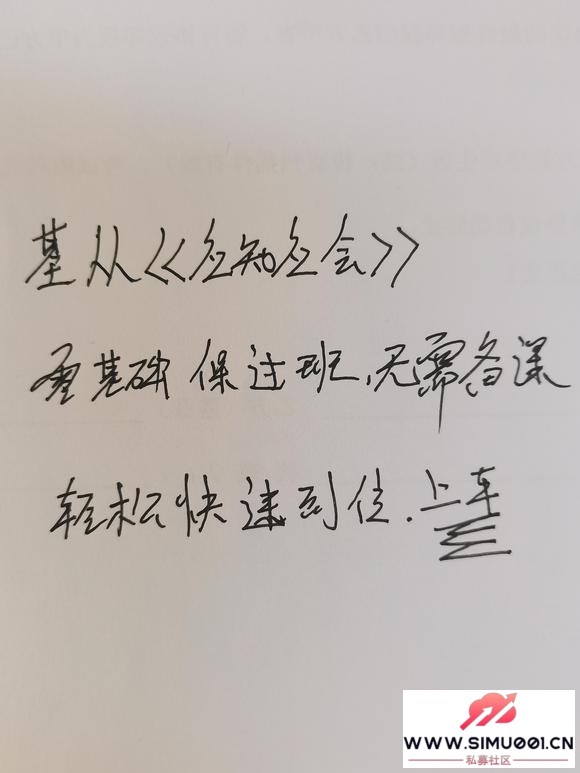 基从《应知应会》
零基础保过班,无需备课
轻松快速到位.上车
WWW.SIMU001.CN
私募社区